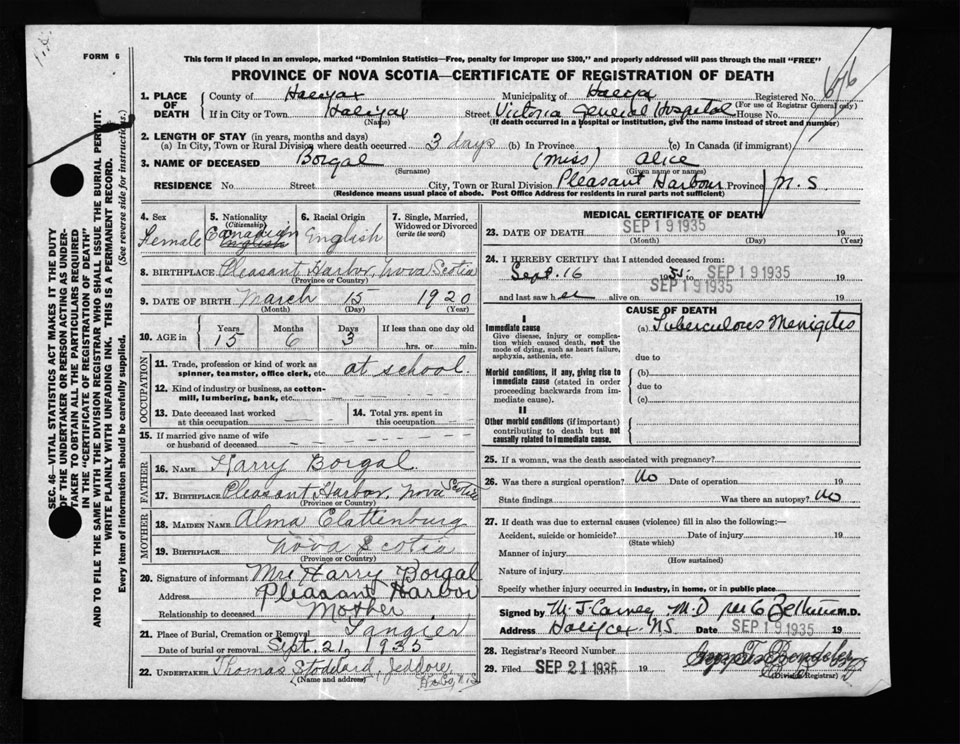 FORM 6
This form if placed in an envelope, marked "Dominion Statistics—Free, penalty for improper use $300," and properly addressed will pass through the mail "FREE"
PROVINCE OF NOVA SCOTIA—CERTIFICATE OF REGISTRATION OF DEATH
1. PLACE OF DEATH
County of Halifax Municipality of Halifax Registered No.
(For use of Registrar General only)
If in City or Town Halifax Street Victoria General Hospital House No.
(Name) (If death occurred in a hospital or institution, give the name instead of street and number)
2. LENGTH OF STAY (in years, months and days)
(a) In City, Town or Rural Division where death occurred 3 days (b) In Province (c) In Canada (if immigrant)
3. NAME OF DECEASED Borgal (Miss) Alice
(Surname) (Given name or names)
RESIDENCE No. Street City, Town or Rural Division Pleasant Harbour Province N.S
(Residence means usual place of abode. Post Office Address for residents in rural parts not sufficient)
4. Sex
Female
5. Nationality (Citizenship)
Canadian
English
6. Racial Origin
English
7. Single, Married, Widowed or Divorced (write the word)
8. BIRTHPLACE Pleasant Harbor, Nova Scotia
(Province or Country)
9. DATE OF BIRTH March 15 1920
(Month) (Day) (Year)
10. AGE in Years Months Days If less than one day old
15 6 3 hrs. or min.
OCCUPATION
11. Trade, profession or kind of work as spinner, teamster, office clerk, etc. at school.
12. Kind of industry or business, as cotton-mill, lumbering, bank, etc.
13. Date deceased last worked at this occupation
14. Total yrs. spent in this occupation
15. If married give name of wife or husband of deceased
FATHER
16. NAME Harry Borgal
17. BIRTHPLACE Pleasant Harbor, Nova Scotia
(Province or Country)
MOTHER
18. MAIDEN NAME Alma Clattenburg
19. BIRTHPLACE Nova Scotia
(Province or Country)
20. Signature of informant Mrs Harry Borgal
Address Pleasant Harbor
Relationship to deceased Mother
21. Place of Burial, Cremation or Removal Tangier
Date of burial or removal Sept. 21, 1935
22. UNDERTAKER Thomas Stoddard, Jeddore,
(Name and address) Hfx Co, N.S
MEDICAL CERTIFICATE OF DEATH
23. DATE OF DEATH SEP 19 1935 19
(Month) (Day) (Year)
24. I HEREBY CERTIFY that I attended deceased from:
Sept. 16 1935 to SEP 19 1935 19
and last saw her alive on SEP 19 1935 19
CAUSE OF DEATH
I
Immediate cause
Give disease, injury or complication which caused death, not the mode of dying, such as heart failure, asphyxia, asthenia, etc.
(a) Tuberculous Menigites
due to
Morbid conditions, if any, giving rise to immediate cause (stated in order proceeding backwards from immediate cause).
(b)
due to
(c)
II
Other morbid conditions (if important) contributing to death but not causally related to immediate cause.
25. If a woman, was the death associated with pregnancy?
26. Was there a surgical operation? No Date of operation 19
State findings Was there an autopsy? No
27. If death was due to external causes (violence) fill in also the following:—
Accident, suicide or homicide? Date of injury 19
(State which)
Manner of injury
(How sustained)
Nature of injury
Specify whether injury occurred in industry, in home, or in public place
Signed by M. J. Carney M.D M.D.
Address Halifax N.S. Date SEP 19 1935
28. Registrar's Record Number
29. Filed SEP 21 1935 19
(Division Registrar)
SEC. 46—VITAL STATISTICS ACT MAKES IT THE DUTY
OF THE UNDERTAKER OR PERSON ACTING AS UNDER-
TAKER TO OBTAIN ALL THE PARTICULARS REQUIRED
IN THE "CERTIFICATE OF REGISTRATION OF DEATH"
AND TO FILE THE SAME WITH THE DIVISION REGISTRAR WHO SHALL ISSUE THE BURIAL PERMIT.
WRITE PLAINLY WITH UNFADING INK. THIS IS A PERMANENT RECORD.
Every item of information should be carefully supplied. (See reverse side for instructions.)